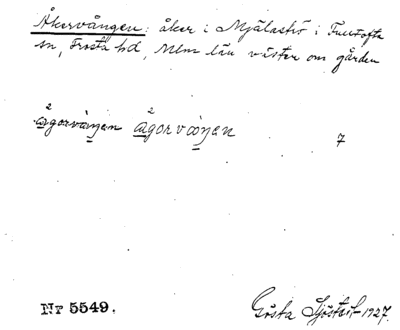 Åkervången: åker i Mjälaströ i Fulltofta
sn, Frosta hd, Mlm län väster om gården
2 2
ågorvàŋen ågorvàŋen
7
Nr 5549.
Gösta Sjöstedt 1927.